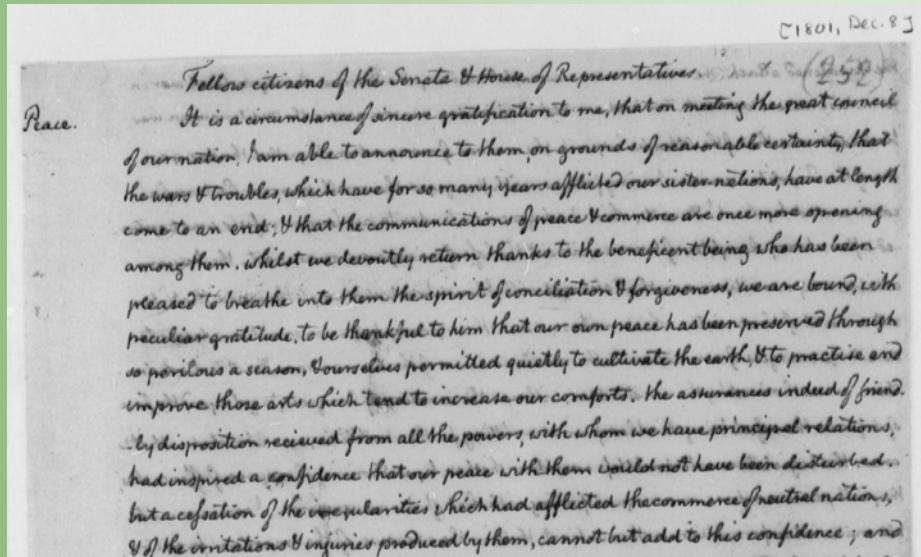 [1801, Dec. 8]
(252)
Fellow citizens of the Senate & House of Representatives.
Peace.
It is a circumstance of sincere gratification to me, that on meeting the great council
of our nation, I am able to announce to them, on grounds of reasonable certainty, that
the wars & troubles, which have for so many years afflicted our sister-nations, have at length
come to an end; & that the communications of peace & commerce are once more opening
among them. whilst we devoutly return thanks to the beneficent being who has been
pleased to breathe into them the spirit of conciliation & forgiveness, we are bound, with
peculiar gratitude, to be thankful to him that our own peace has been preserved through
so perilous a season, & ourselves permitted quietly to cultivate the earth, & to practise and
improve those arts which tend to increase our comforts. the assurances indeed of friend-
-ly disposition recieved from all the powers, with whom we have principal relations,
had inspired a confidence that our peace with them would not have been disturbed.
but a cessation of the irregularities which had afflicted the commerce of neutral nations,
& of the irritations & injuries produced by them, cannot but add to this confidence; and